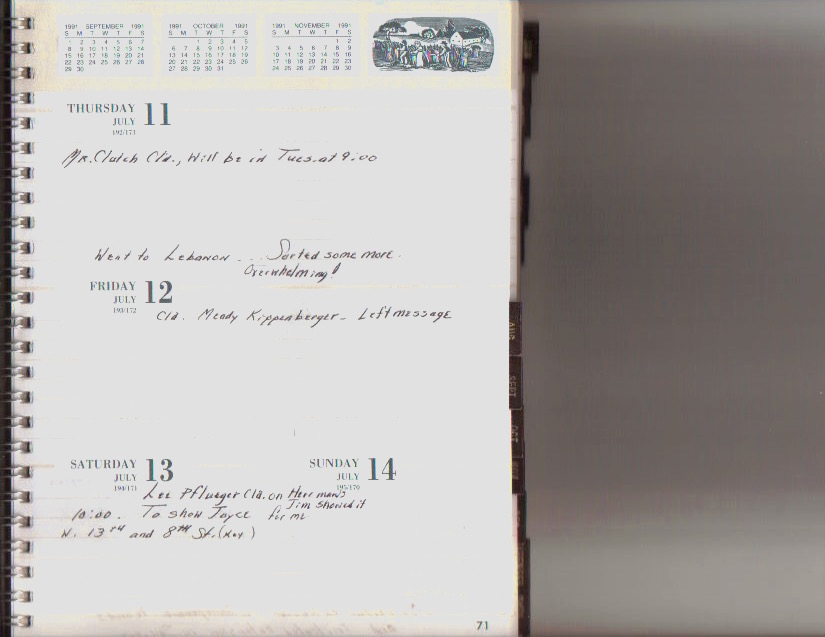 1991 SEPTEMBER 1991
S M T W T F S
1 2 3 4 5 6 7
8 9 10 11 12 13 14
15 16 17 18 19 20 21
22 23 24 25 26 27 28
29 30
1991 OCTOBER 1991
S M T W T F S
1 2 3 4 5
6 7 8 9 10 11 12
13 14 15 16 17 18 19
20 21 22 23 24 25 26
27 28 29 30 31
1991 NOVEMBER 1991
S M T W T F S
1 2
3 4 5 6 7 8 9
10 11 12 13 14 15 16
17 18 19 20 21 22 23
24 25 26 27 28 29 30
THURSDAY 11
JULY
192/173
Mr. Clutch Cld., Will be in Tues. at 9:00
Went to Lebanon ... Sorted some more.
Overwhelming!
FRIDAY 12
JULY
193/172
Cld. Mendy Kippenberger - Left message
SATURDAY 13
JULY
194/171
SUNDAY 14
JULY
195/170
Lee Pflueger Cld. on Hermans
10:00. To show Joyce
Jim showed it
for me
N. 13rd and 8th St. (Key)
AUG
SEPT
OCT
71